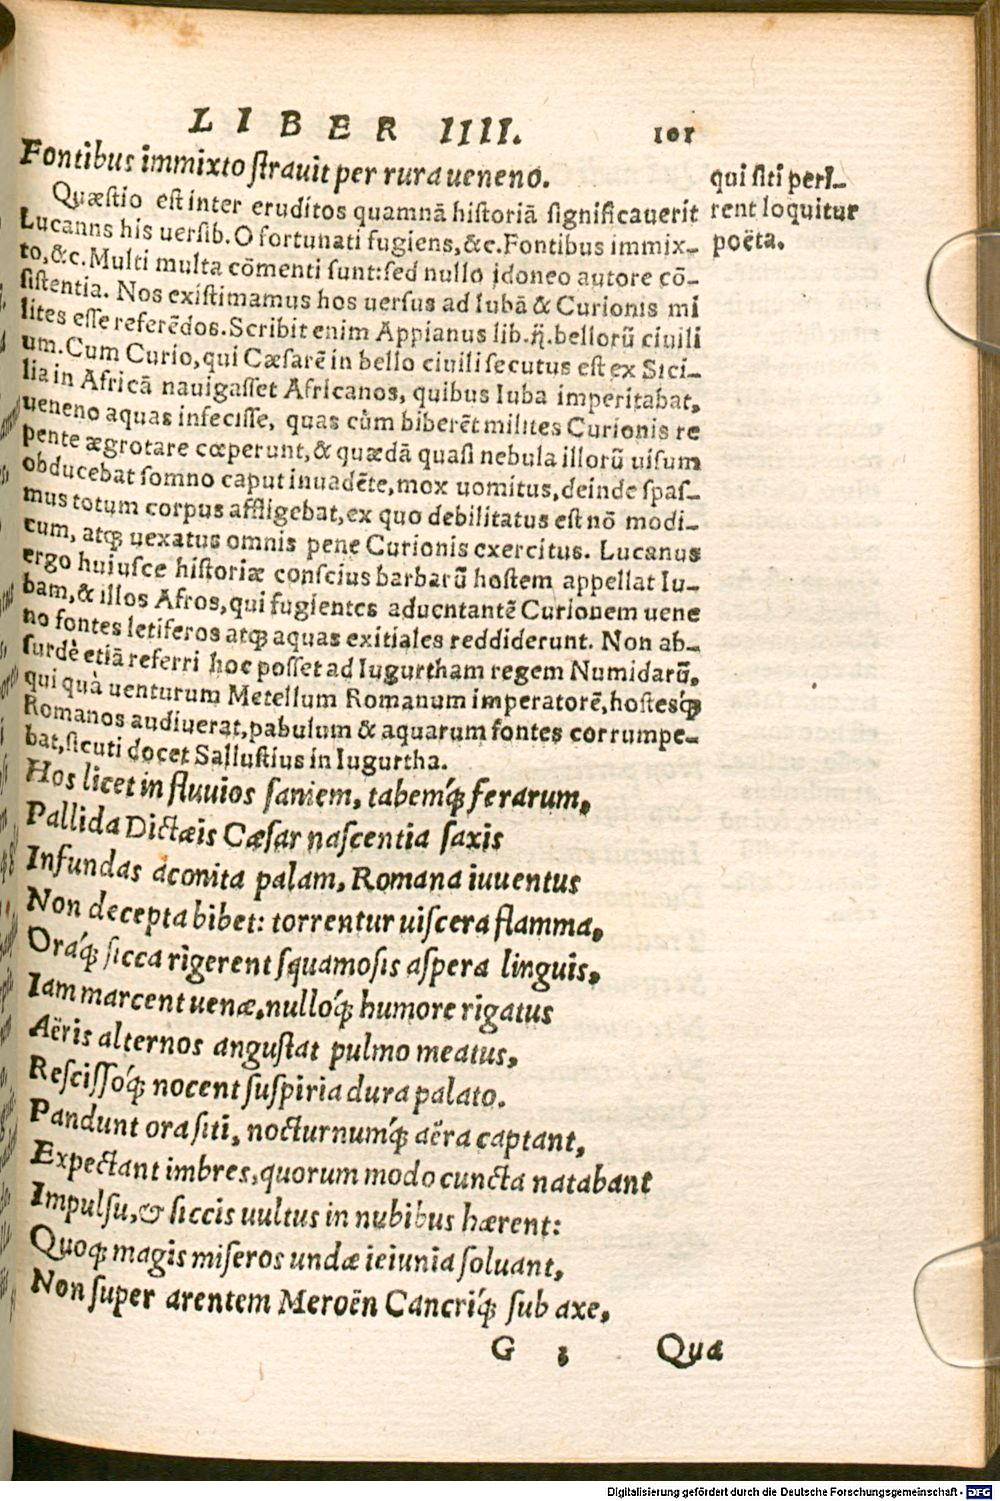 LIBER IIII. 101
Fontibus immixto ſtrauit per rura ueneno.
Quæstio est inter eruditos quamnã historiã significauerit
Lucanns his uersib. O fortunati fugiens, &c. Fontibus immix-
to, &c. Multi multa cõmenti sunt: sed nullo idoneo autore cõ-
sistentia. Nos existimamus hos uersus ad Iubã & Curionis mi
lites esse referẽdos. Scribit enim Appianus lib. ij. bellorũ ciuili
um. Cum Curio, qui Cæsarẽ in bello ciuili secutus est ex Sici-
lia in Africã nauigasset Africanos, quibus Iuba imperitabat,
ueneno aquas infecisse, quas cùm biberẽt milites Curionis re
pente ægrotare cœperunt, & quædã quasi nebula illorũ uisum
obducebat somno caput inuadẽte, mox uomitus, deinde spas-
mus totum corpus affligebat, ex quo debilitatus est nõ modi-
cum, atq; uexatus omnis pene Curionis exercitus. Lucanus
ergo huiusce historiæ conscius barbarũ hostem appellat Iu-
bam, & illos Afros, qui fugientes aduentantẽ Curionem uene
no fontes letiferos atq; aquas exitiales reddiderunt. Non ab-
surdè etiã referri hoc posset ad Iugurtham regem Numidarũ,
qui quà uenturum Metellum Romanum imperatorẽ, hostesq́;
Romanos audiuerat, pabulum & aquarum fontes corrumpe-
bat, sicuti docet Sallustius in Iugurtha.
Hos licet in fluuios ſaniem, tabemq́; ferarum,
Pallida Dictæis Cæſar naſcentia ſaxis
Infundas aconita palam, Romana iuuentus
Non decepta bibet: torrentur uiſcera flamma,
Oraq́; ſicca rigerent ſquamoſis aſpera linguis,
Iam marcent uenæ, nulloq́; humore rigatus
Aëris alternos anguſtat pulmo meatus,
Reſciſſoq́; nocent ſuſpiria dura palato.
Pandunt ora ſiti, nocturnumq́; aëra captant,
Expectant imbres, quorum modo cuncta natabant
Impulſu, & ſiccis uultus in nubibus hærent:
Quoq; magis miſeros undæ ieiunia ſoluant,
Non ſuper arentem Meroën Cancriq́; ſub axe,
G 3 Qua
qui siti peri-
rent loquitur
poëta.
Digitalisierung gefördert durch die Deutsche Forschungsgemeinschaft - DFG